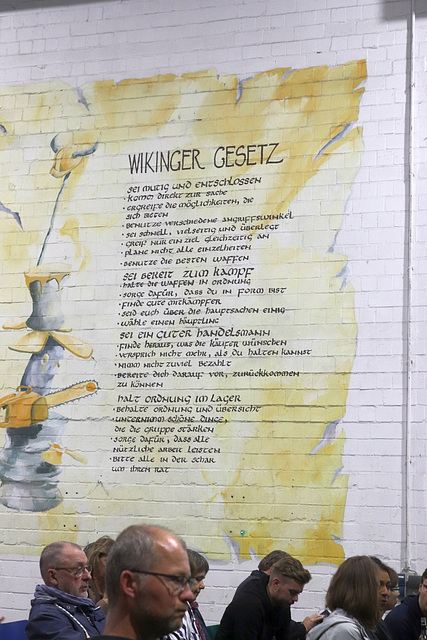 WIKINGER GESETZ
SEI MUTIG UND ENTSCHLOSSEN
· KOMM DIREKT ZUR SACHE
· ERGREIFE DIE MÖGLICHKEITEN, DIE
SICH BIETEN
· BENUTZE VERSCHIEDENE ANGRIFFSWINKEL
· SEI SCHNELL, VIELSEITIG UND ÜBERLEGT
· GREIF NUR EIN ZIEL GLEICHZEITIG AN
· PLANE NICHT ALLE EINZELHEITEN
· BENUTZE DIE BESTEN WAFFEN
SEI BEREIT ZUM KAMPF
· HALTE DIE WAFFEN IN ORDNUNG
· SORGE DAFÜR, DASS DU IN FORM BIST
· FINDE GUTE MITKÄMPFER
· SEID EUCH ÜBER DIE HAUPTSACHEN EINIG
· WÄHLE EINEN HÄUPTLING
SEI EIN GUTER HANDELSMANN
· FINDE HERAUS, WAS DIE KÄUFER WÜNSCHEN
· VERSPRICH NICHT MEHR, ALS DU HALTEN KANNST
· NIMM NICHT ZUVIEL BEZAHLT
· BEREITE DICH DARAUF VOR, ZURÜCKKOMMEN
ZU KÖNNEN
HALT ORDNUNG IM LAGER
· BEHALTE ORDNUNG UND ÜBERSICHT
· UNTERNIMM SCHÖNE DINGE,
DIE DIE GRUPPE STÄRKEN
· SORGE DAFÜR, DASS ALLE
NÜTZLICHE ARBEIT LEISTEN
· BITTE ALLE IN DER SCHAR
UM IHREN RAT